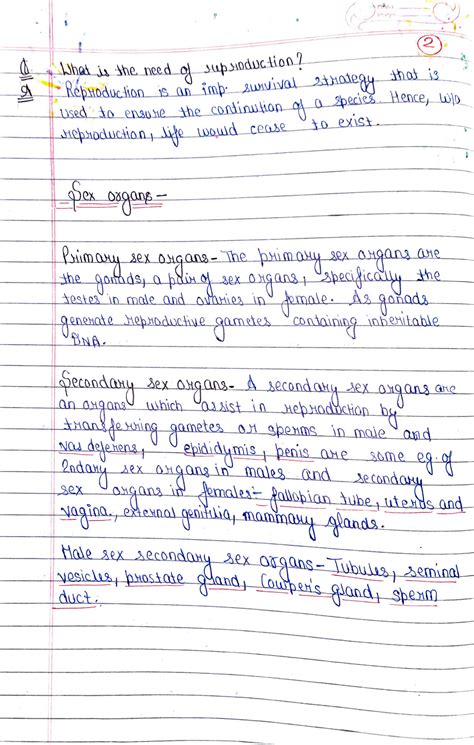 2
Q. What is the need of reproduction?
A Reproduction is an imp. survival strategy that is
used to ensure the continution of a species. Hence, w/o
reproduction, life would cease to exist.
Sex organs -
Primary sex organs - The primary sex organs are
the gonads, a pair of sex organs, specifically the
testes in male and ovaries in female. As gonads
generate reproductive gametes containing inheritable
DNA.
Secondary sex organs - A secondary sex organs are
an organs which assist in reproduction by
transferring gametes or sperms in male and
vas deferens, epididymis, penis are some eg. of
2ndary sex organs in males and secondary
sex organs in females:- fallopian tube, uterus and
vagina., external genitilia, mammary glands.
Male sex secondary sex organs - Tubules, seminal
vesicles, prostate gland, Cowper's gland, sperm
duct.